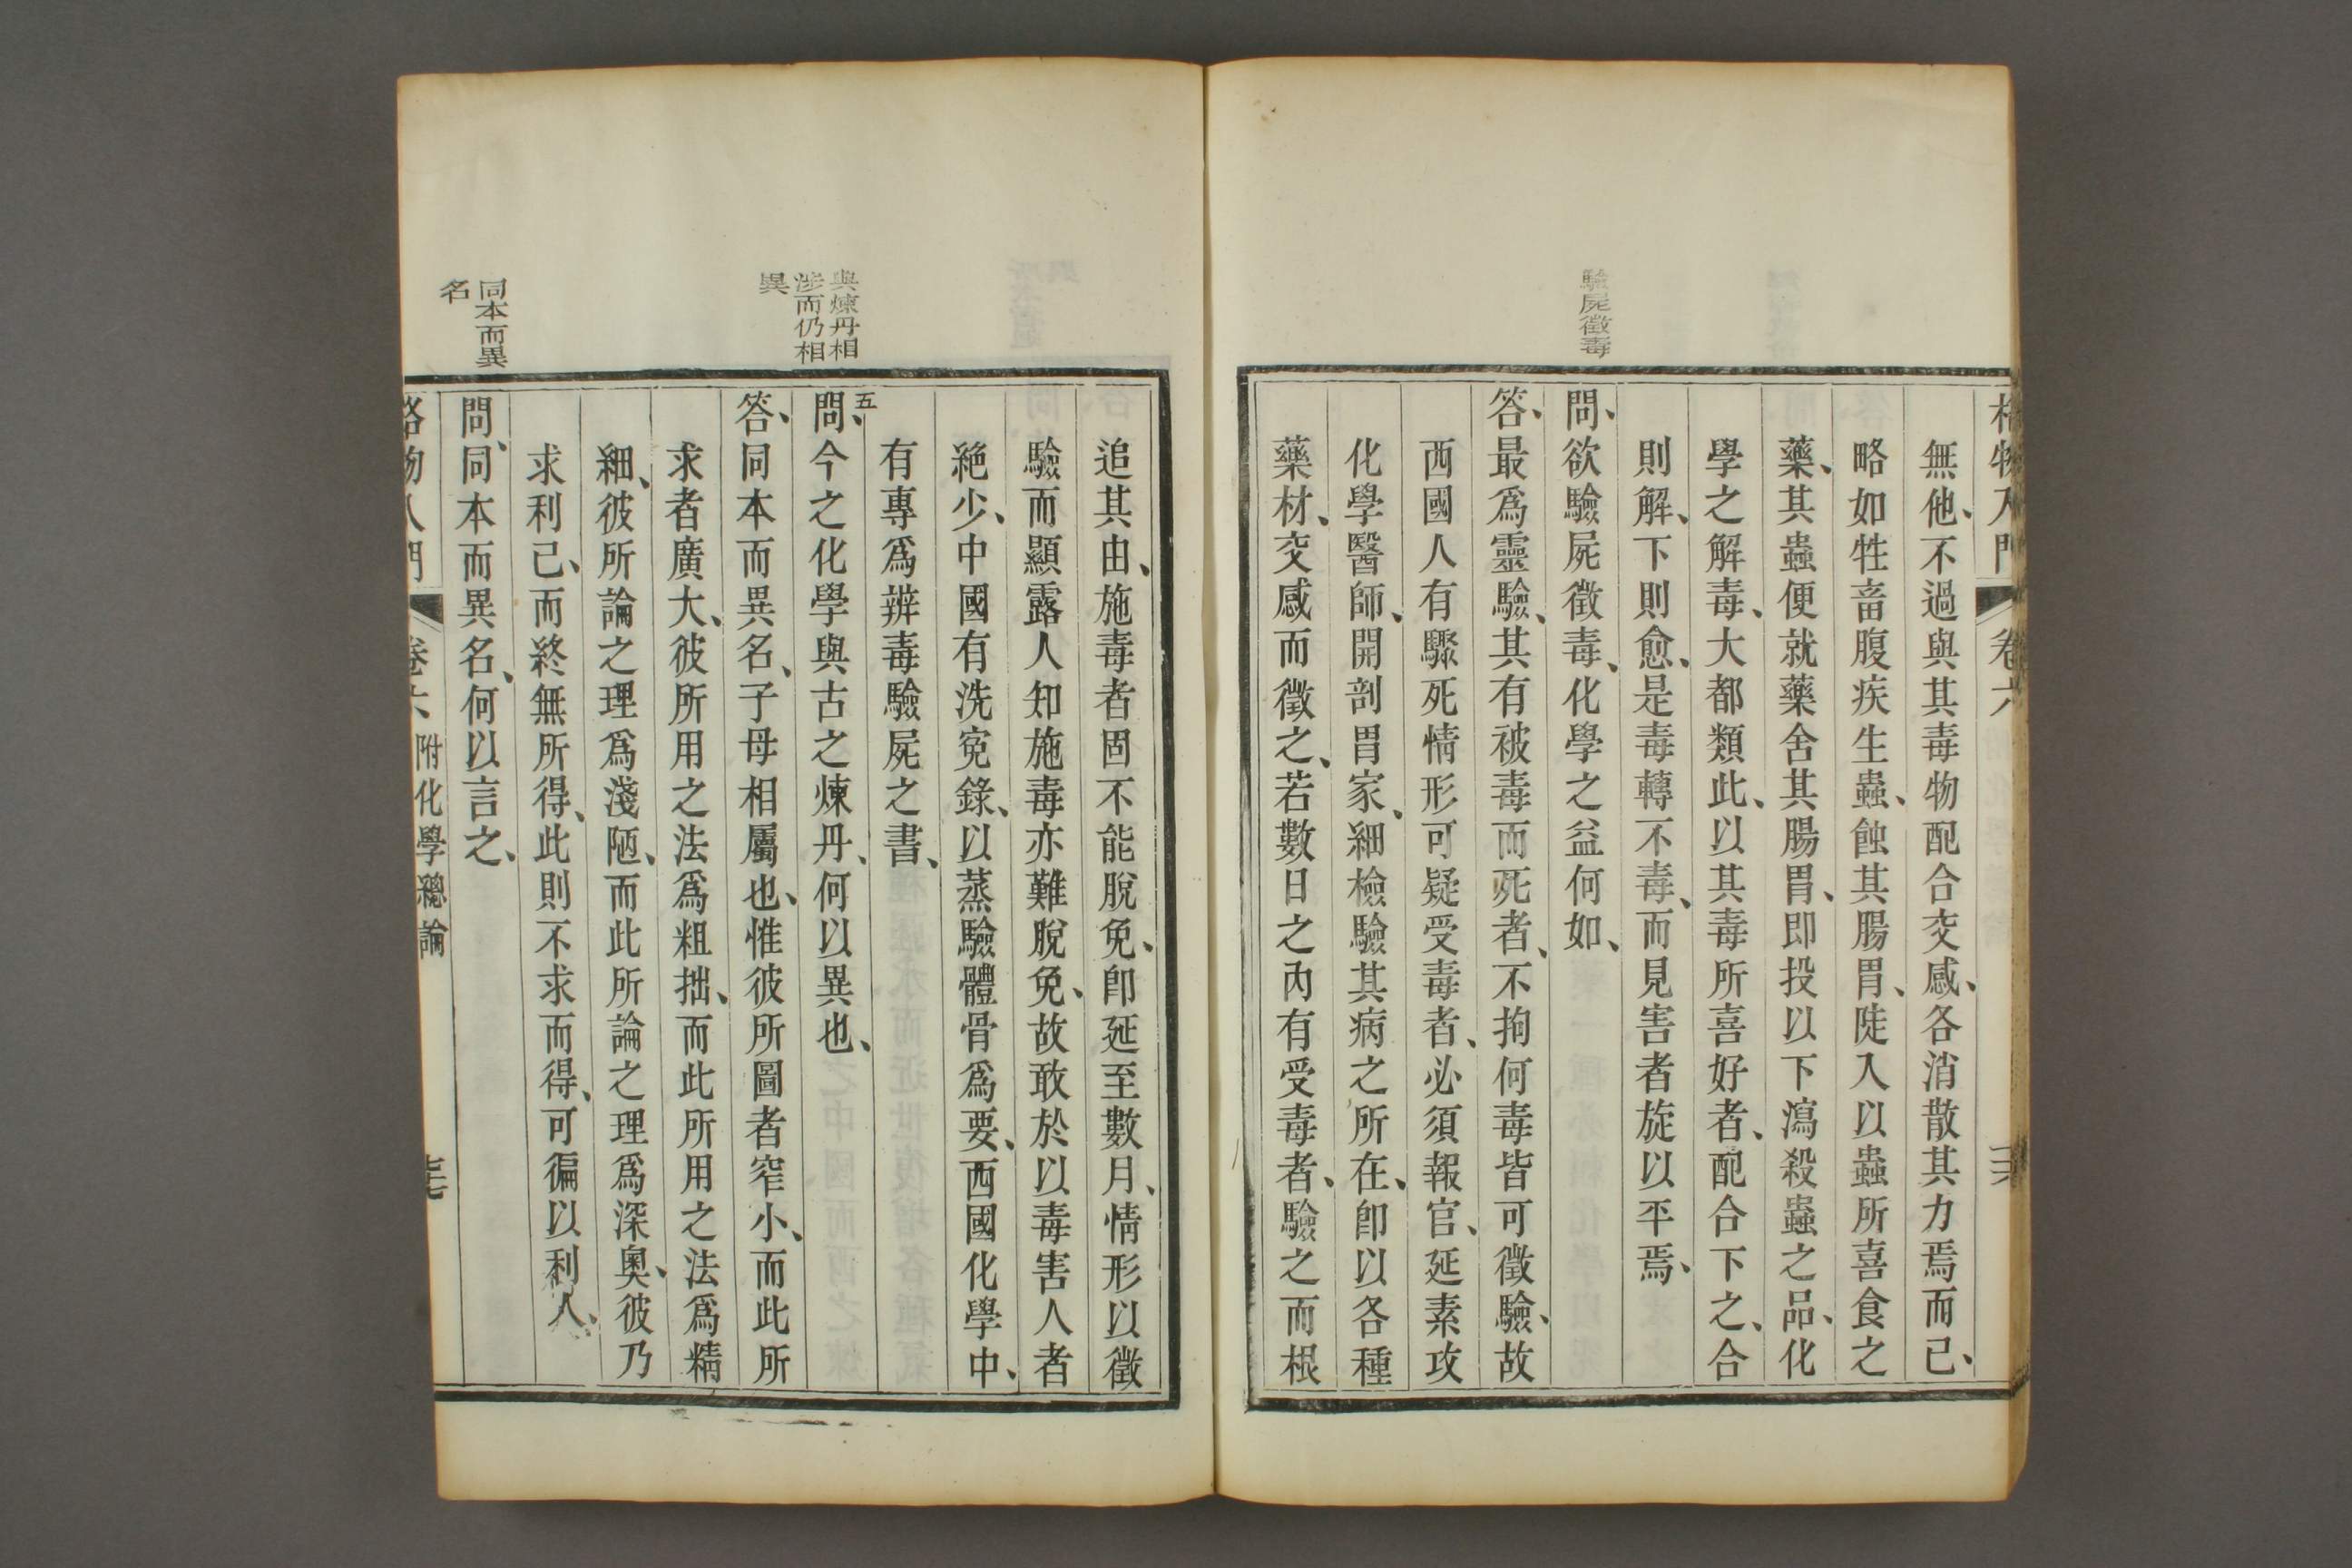 格物入門 卷六
無他、不過與其毒物配合交感、各消散其力焉而已、
略如牲畜腹疾生蟲、蝕其腸胃、陡入以蟲所喜食之
藥、其蟲便就藥舍其腸胃、即投以下瀉殺蟲之品、化
學之解毒、大都類此、以其毒所喜好者、配合下之、合
則解、下則愈、是毒轉不毒、而見害者旋以平焉、
驗屍徵毒
問、欲驗屍徵毒、化學之益何如、
答、最爲靈驗、其有被毒而死者、不拘何毒皆可徵驗、故
西國人有驟死情形可疑受毒者、必須報官、延素攻
化學醫師、開剖胃家、細檢驗其病之所在、卽以各種
藥材、交感而徵之、若數日之內有受毒者、驗之而根
追其由、施毒者固不能脫免、卽延至數月、情形以徵
驗而顯露人知施毒亦難脫免、故敢於以毒害人者
絕少、中國有洗冤錄、以蒸驗體骨爲要、西國化學中、
有專爲辨毒驗屍之書、
與煉丹相
涉而仍相
異
五
問、今之化學與古之煉丹、何以異也、
答、同本而異名、子母相屬也、惟彼所圖者窄小、而此所
求者廣大、彼所用之法爲粗拙、而此所用之法爲精
細、彼所論之理爲淺陋、而此所論之理爲深奧、彼乃
求利己、而終無所得、此則不求而得、可徧以利人、
同本而異
名
問、同本而異名、何以言之、
格物入門 卷六、附化學總論